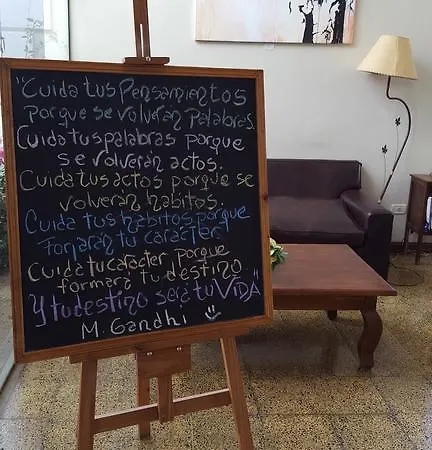 "Cuida tus Pensamientos
porque se volverán Palabras.
Cuida tus palabras porque
se volverán actos.
Cuida tus actos porque se
volverán hábitos.
Cuida tus hábitos porque
Forjarán tu carácter
Cuida tu carácter, porque
formará tu destino.
Y tu destino será tu VIDA"
M. Gandhi